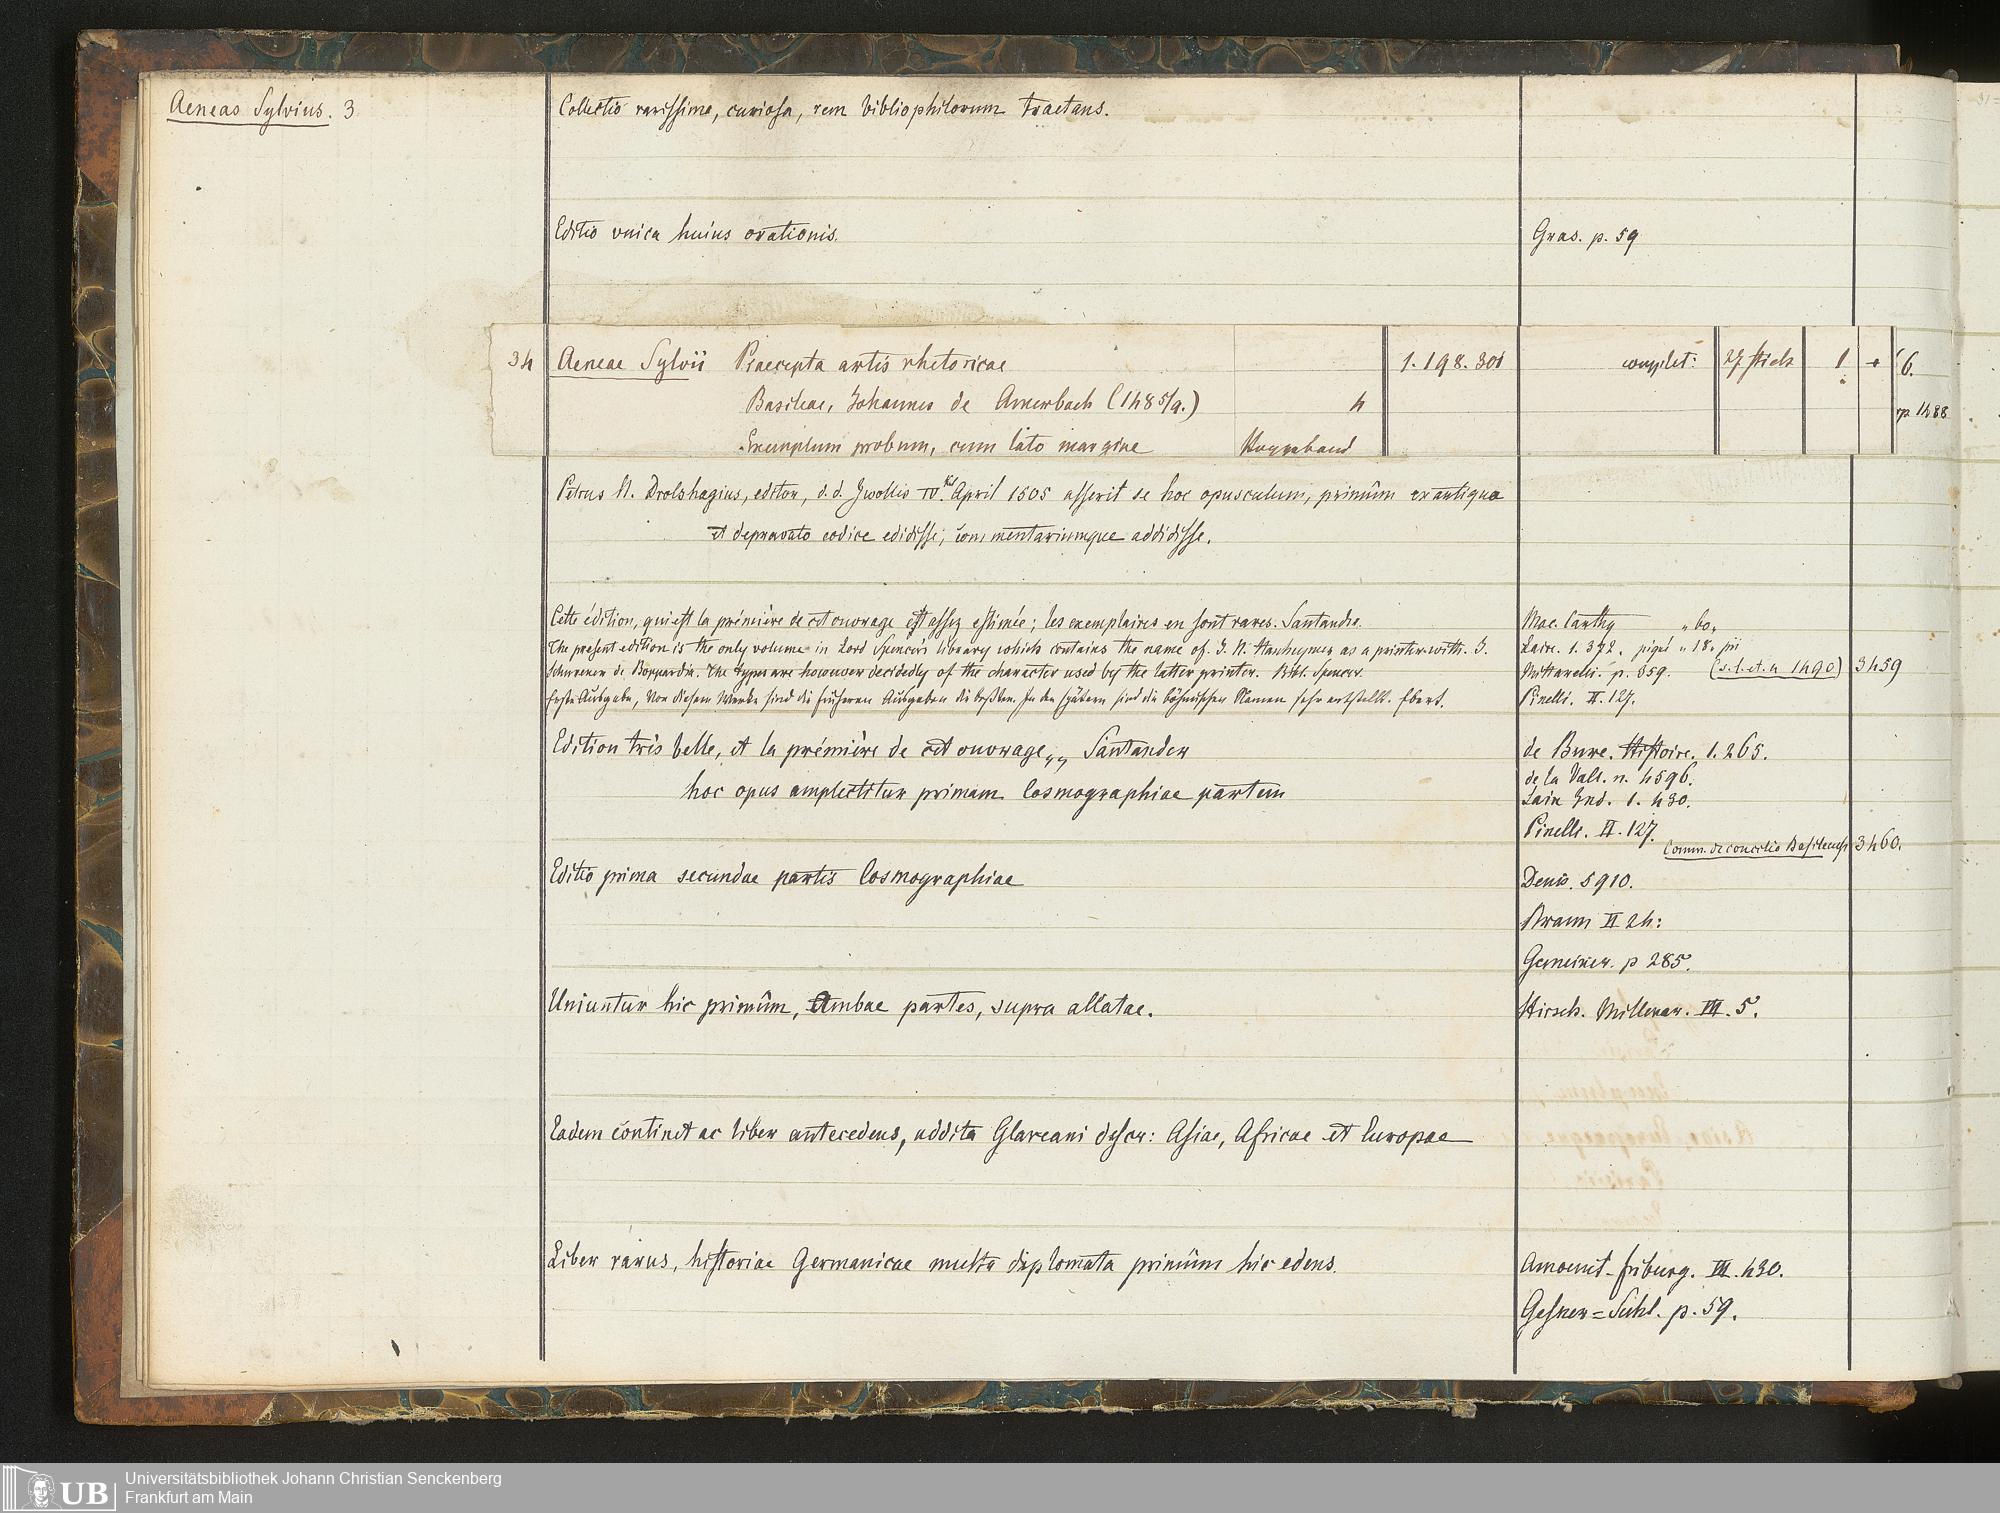 Aeneas Sylvius. 3
Collectio rarissima, curiosa, rem bibliophilorum tractans.
Editio unica huius orationis.
Gras. p. 59
34 Aeneae Sylvii Praecepta artis rhetoricae 1. 198. 301 complet: 1 + 6.
Basileae, Johannes de Amerbach (1485/9.) 4 1488
Exemplum probum, cum lato margine Pappband
Petrus N. Drolshagius, editor, d. d. Zwollis IV. Kal April 1505 asserit se hoc opusculum, primùm ex antiquo
et depravato codice edidisse, commentariumque addidisse.
Cette édition, qui est la prémière de cet ouvrage est assez estimée; les exemplaires en sont rares. Santandre.
The present edition is the only volume in Lord Spencers library which contains the name of J. N. Hanheymer as a printer with J.
Schurener de Boppardia. The types are however decidedly of the character used by the latter printer. Bibl. Spencer.
Erste Ausgabe, Von diesem Werke sind die früheren Ausgaben die besten. In den spätern sind die böhmischen Namen sehr entstellt. Ebert.
Mac. Carthy „ 60 „
Laire. 1. 372. piqué „ 18 „
Mittarelli. p. 359. (s. l. et. a 1490) 3459
Pinelli. II. 127.
Edition très belle, et la prémière de cet ouvrage „„ Santander
hoc opus amplectitur primam Cosmographiae partem
de Bure. Histoire. 1. 265.
de la Vall. n. 4596.
Lair Ind. 1. 430.
Pinelli. II. 127.
Comm. de concilio Basileensi 3460.
Editio prima secundae partis Cosmographiae
Denis. 5910.
Braun II 24:
Gemeiner. p 285.
Uniuntur hic primùm, Ambae partes, supra allatae.
Hirsch. Millenar. III. 5.
Eadem continet ac liber antecedens, addita Glareani descr: Asiae, Africae et Europae
Liber rarus, historiae Germanicae multa diplomata primùm hic edens.
Amoenit-friburg. III. 430.
Gesner=Suhl. p. 59.
Universitätsbibliothek Johann Christian Senckenberg
Frankfurt am Main
UB